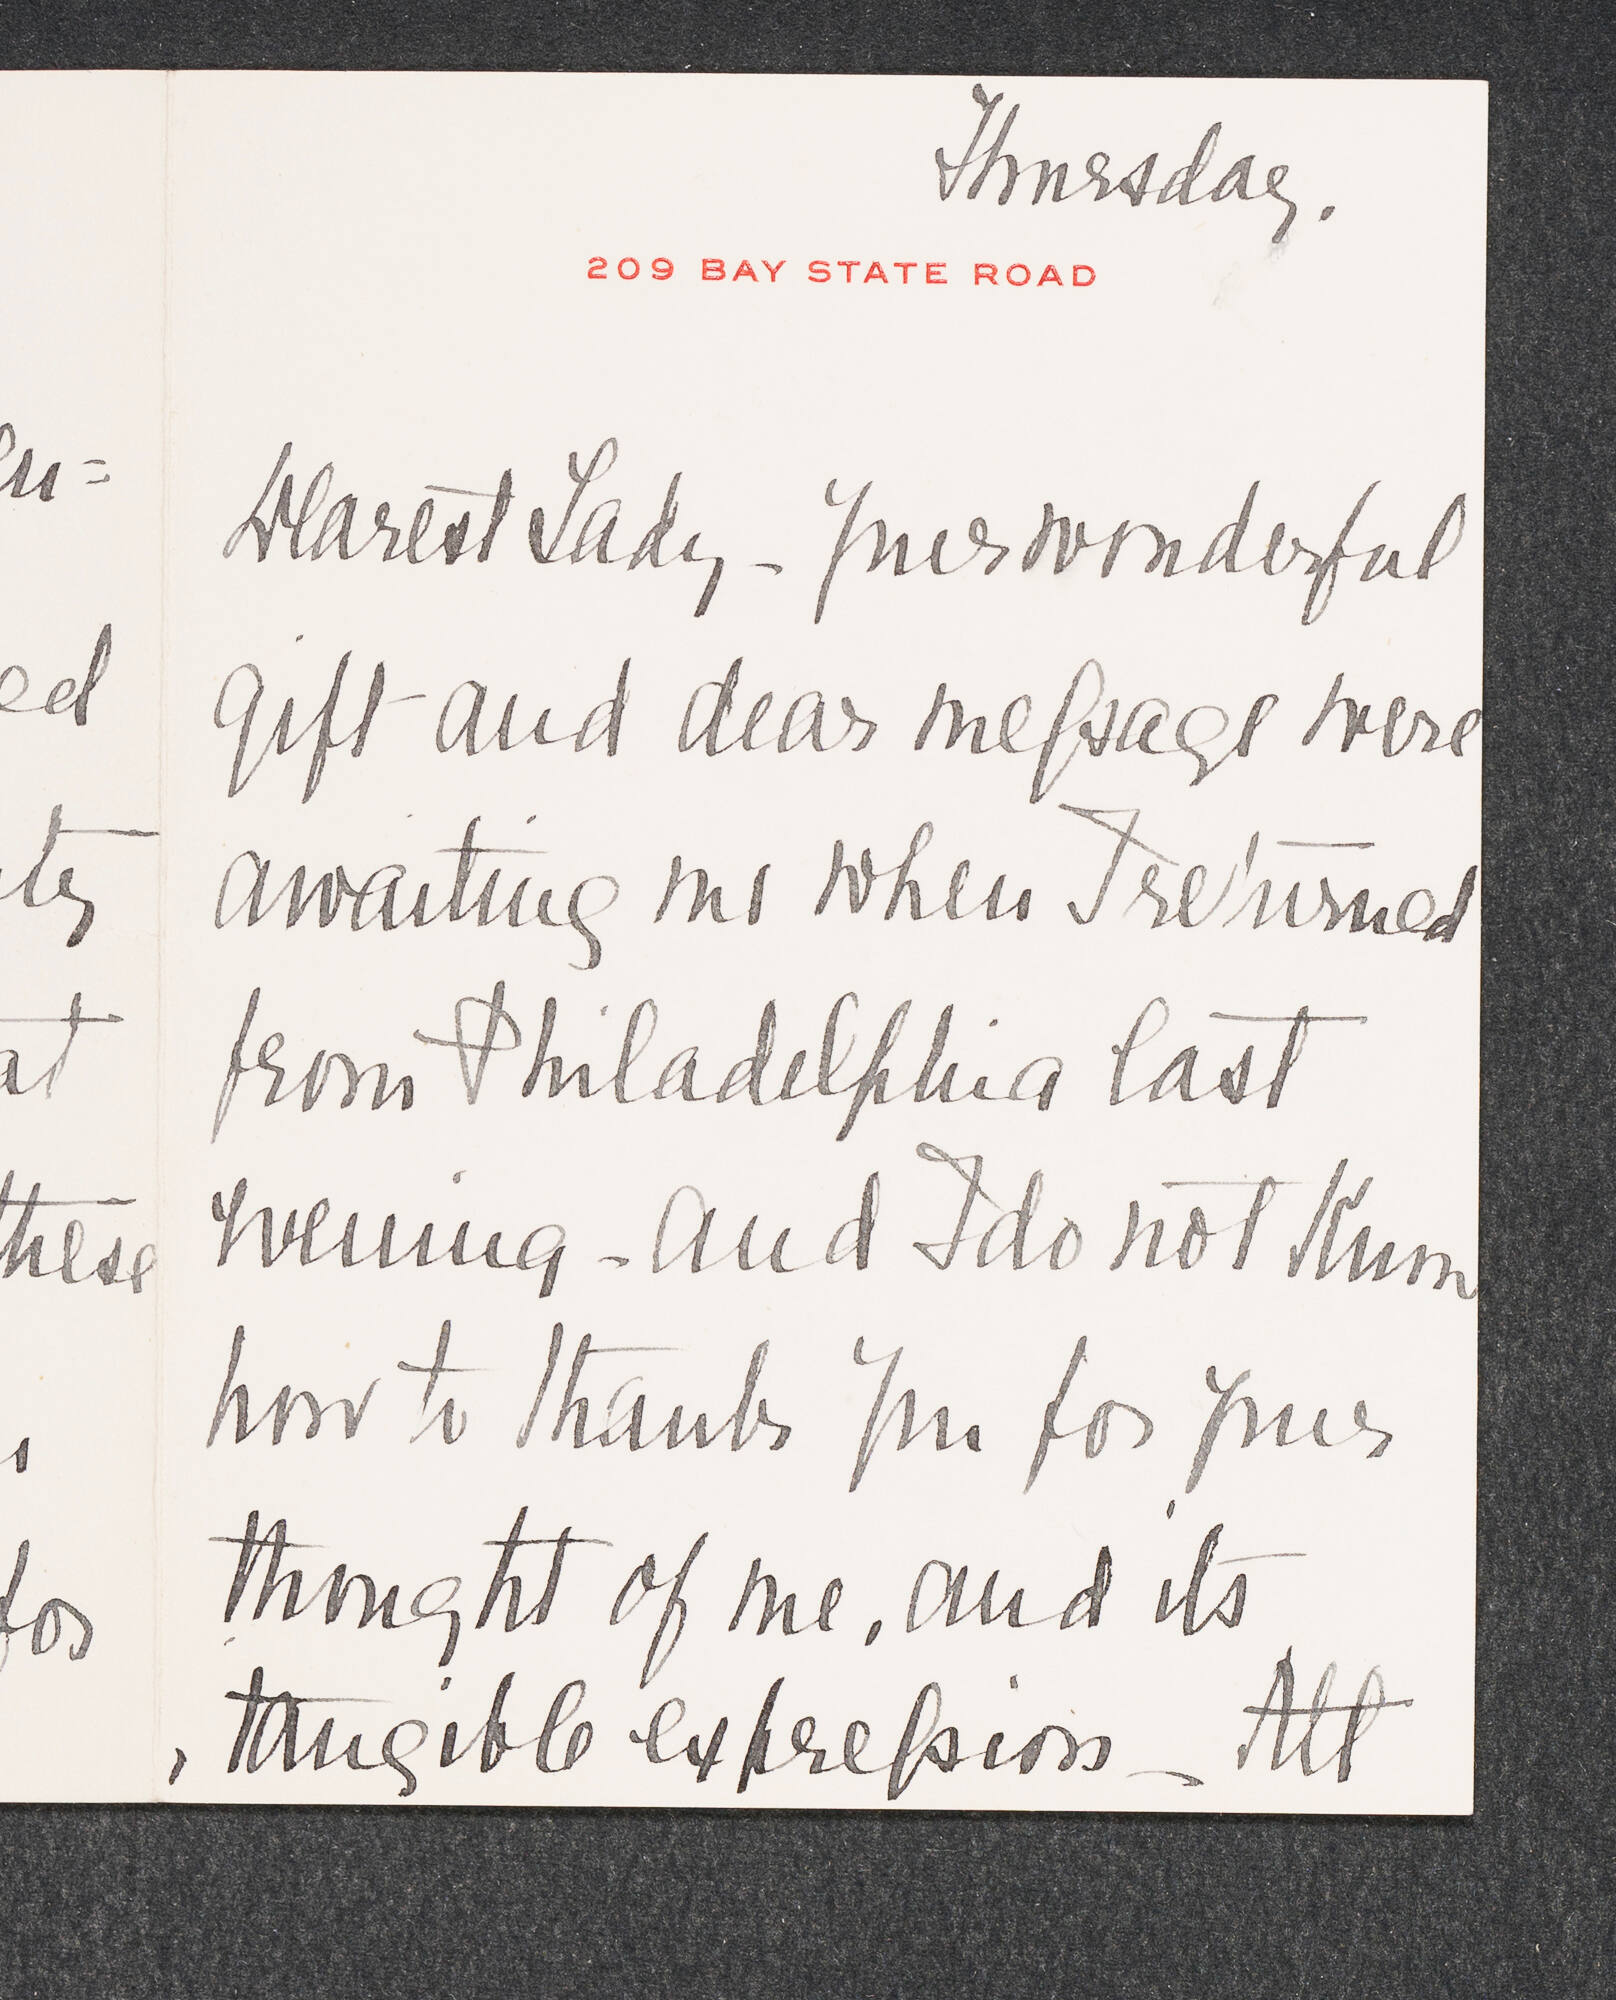 Thursday.
209 BAY STATE ROAD
Dearest Lady – your wonderful
gift and dear message were
awaiting me when I returned
from Philadelphia last
evening – and I do not know
how to thank you for your
thought of me, and its
tangible expression – All
ed
at
these
for